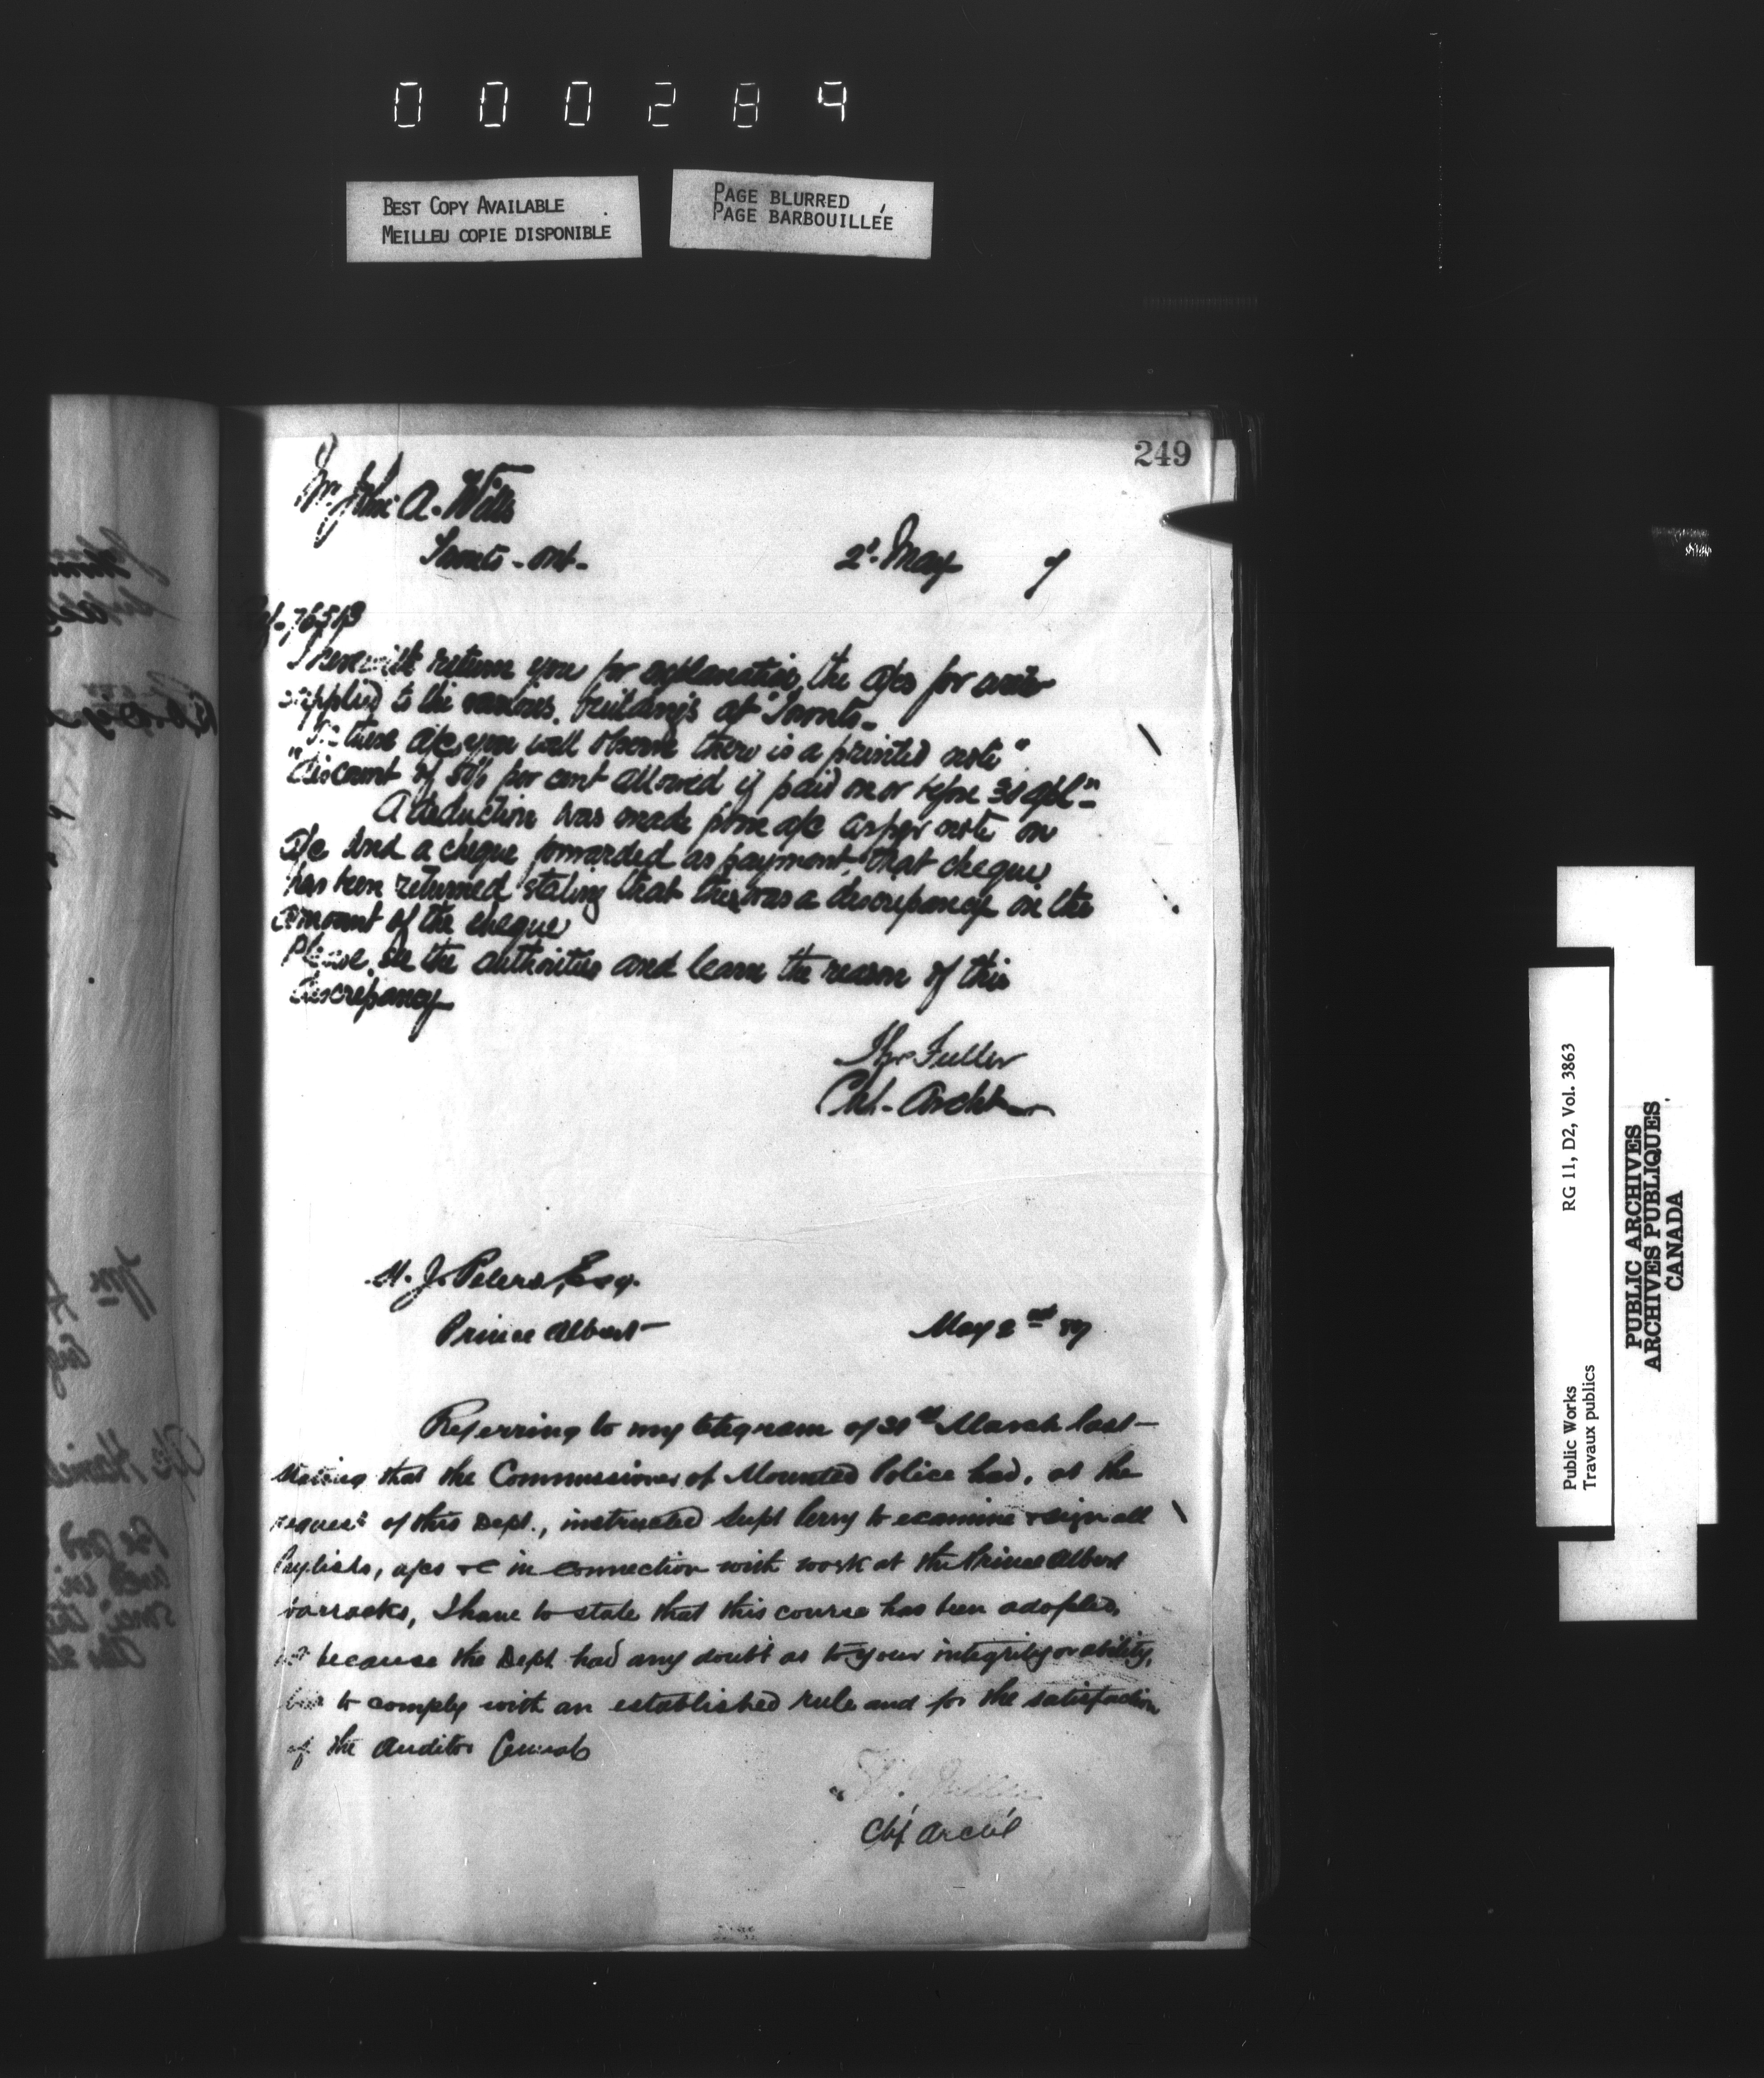 000284
BEST COPY AVAILABLE
MEILLEU COPIE DISPONIBLE
PAGE BLURRED
PAGE BARBOUILLÉE
249
Mr. John A. Wills
Toronto - Ont -
2d. May 7
76513
I herewith return you for explanation, the a/cs for water
supplied to the various buildings at Toronto -
these a/cs, you will observe there is a printed note "
discount of 50% per cent allowed if paid on or before 30 Apl" -
A deduction was made from a/c as per note on
a/c and a cheque forwarded as payment, that cheque
has been returned stating that there was a discrepancy in the
amount of the cheque
Please see the authorities and learn the reason of this
discrepancy
Thos Fuller
Chf - Archt
H. J. Peters, Esq.
Prince Albert
May 2nd 87
Referring to my telegram of 31st March last -
stating that the Commissioner of Mounted Police had, at the
request of this Dept., instructed Supt Perry to examine & sign all
Paylists, a/cs &c in connection with work at the Prince Albert
barracks, I have to state that this course has been adopted,
not because the Dept. had any doubt as to your integrity or ability,
but to comply with an established rule and for the satisfaction
of the Auditor General
Thos. Fuller
Chf Archt
Public Works
Travaux publics
RG 11, D2, Vol. 3863
PUBLIC ARCHIVES
ARCHIVES PUBLIQUES
CANADA